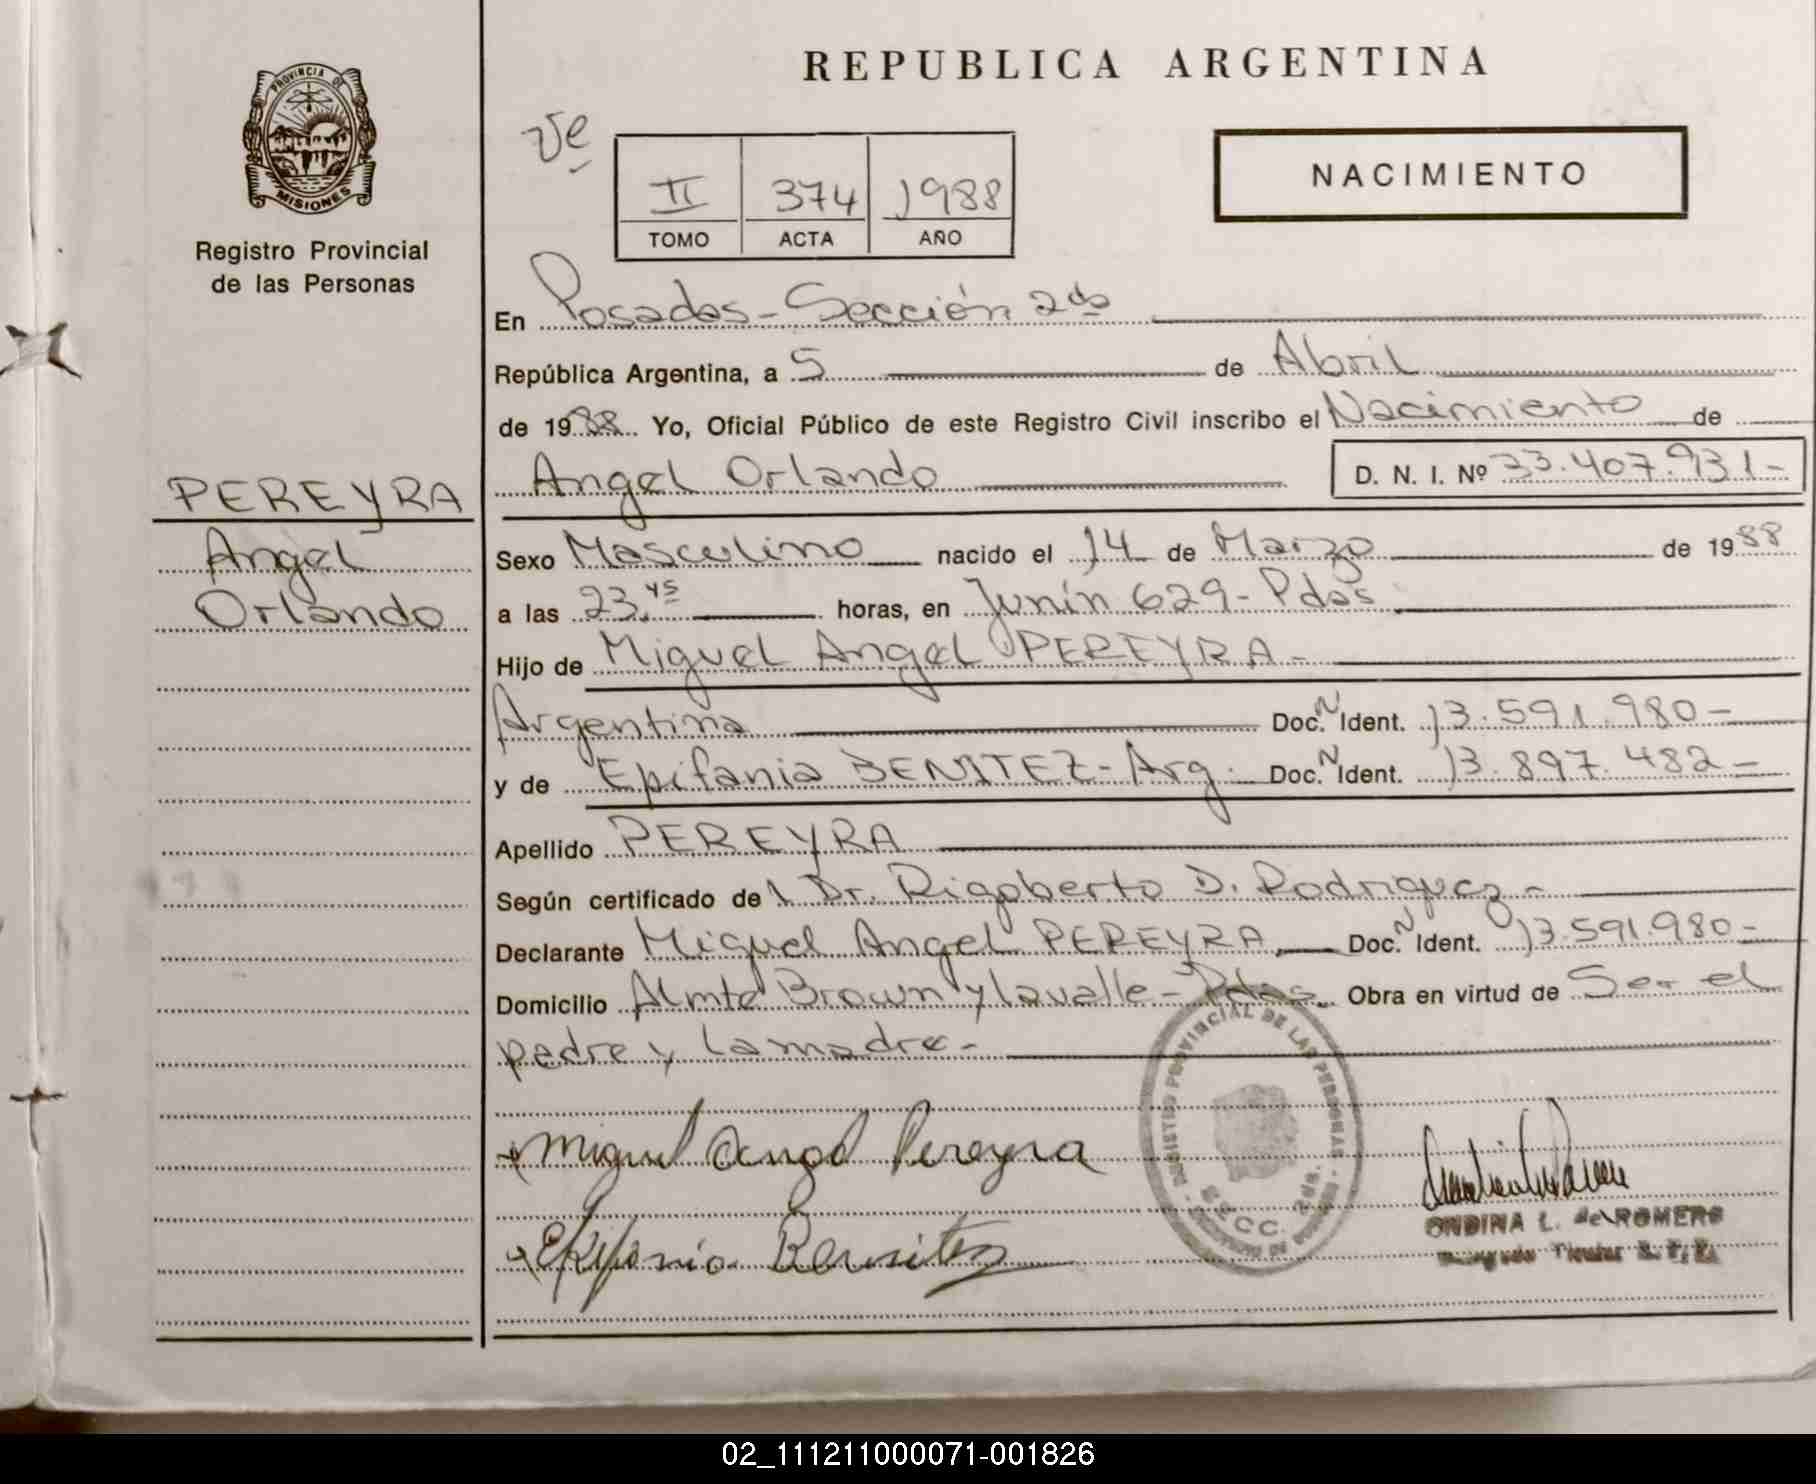 REPUBLICA ARGENTINA
PROVINCIA DE
MISIONES
Registro Provincial
de las Personas
Ve
II 374 1988
TOMO ACTA AÑO
NACIMIENTO
En Posadas - Sección 2da
República Argentina, a 5 de Abril
de 1988 Yo, Oficial Público de este Registro Civil inscribo el Nacimiento de
Angel Orlando D. N. I. Nº 33.407.931-
PEREYRA
Angel
Orlando
Sexo Masculino nacido el 14 de Marzo de 1988
a las 23.45 horas, en Junín 629 - Pdas
Hijo de Miguel Angel PEREYRA -
Argentina Doc. N Ident. 13.591.980-
y de Epifania BENITEZ - Arg. Doc. N Ident. 13.897.482-
Apellido PEREYRA
Según certificado del Dr. Rigoberto D. Rodriguez -
Declarante Miguel Angel PEREYRA Doc. N Ident. 13.591.980-
Domicilio Almte Brown y Lavalle - Pdas. Obra en virtud de Ser el
padre y la madre -
Miguel Angel Pereyra
Epifania Benitez
REGISTRO PROVINCIAL DE LAS PERSONAS
SECC. 2da.
ONDINA L. de ROMERO
02_111211000071-001826